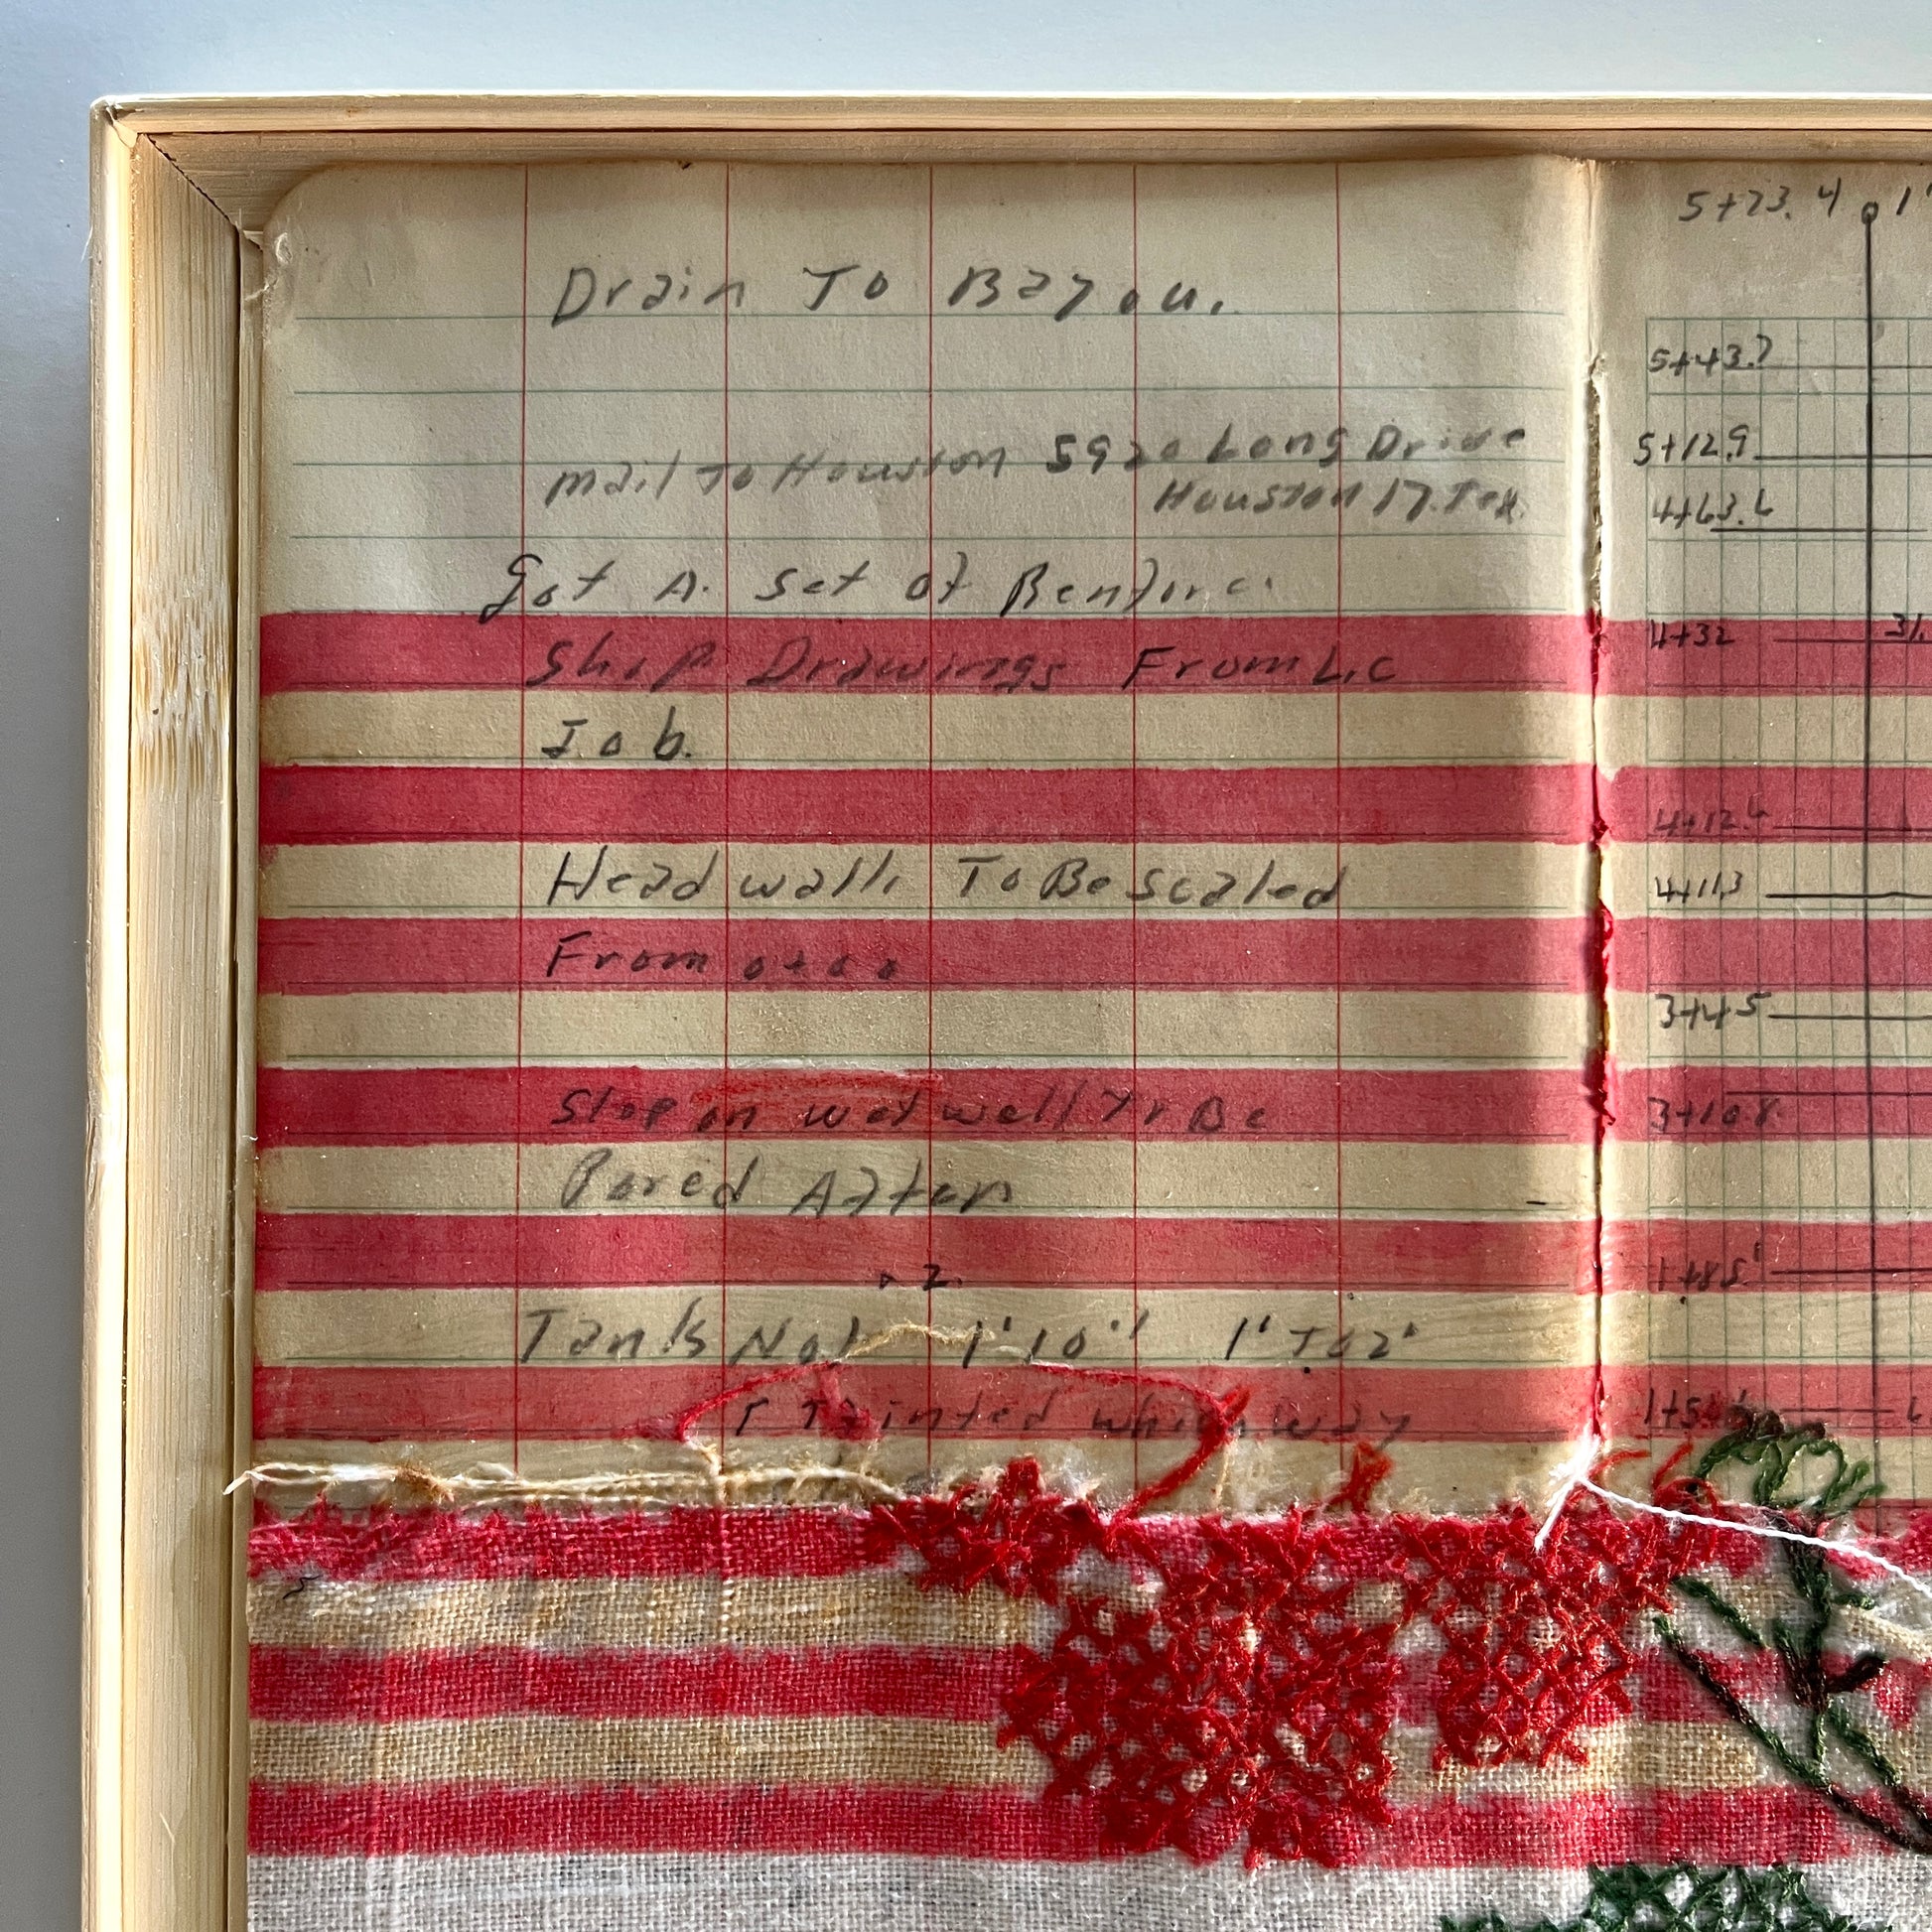 Drain To Bayou.
mail To Houston 5920 Long Drive
Houston 17. Tex.
Got A. Set of Renforc.
Shop Drawings From L.C
Job.
Head wall. To Be Scaled
From 0+00
Slop on wet well To Be
Pored After
2.
Tank No1 1'10" 1' To 2'
which way
5+23.4 1'
5+43.7
5+12.9
4+63.6
4+32 31.
4+12.4
4+11.3
3+45
3+10.8
1+85'